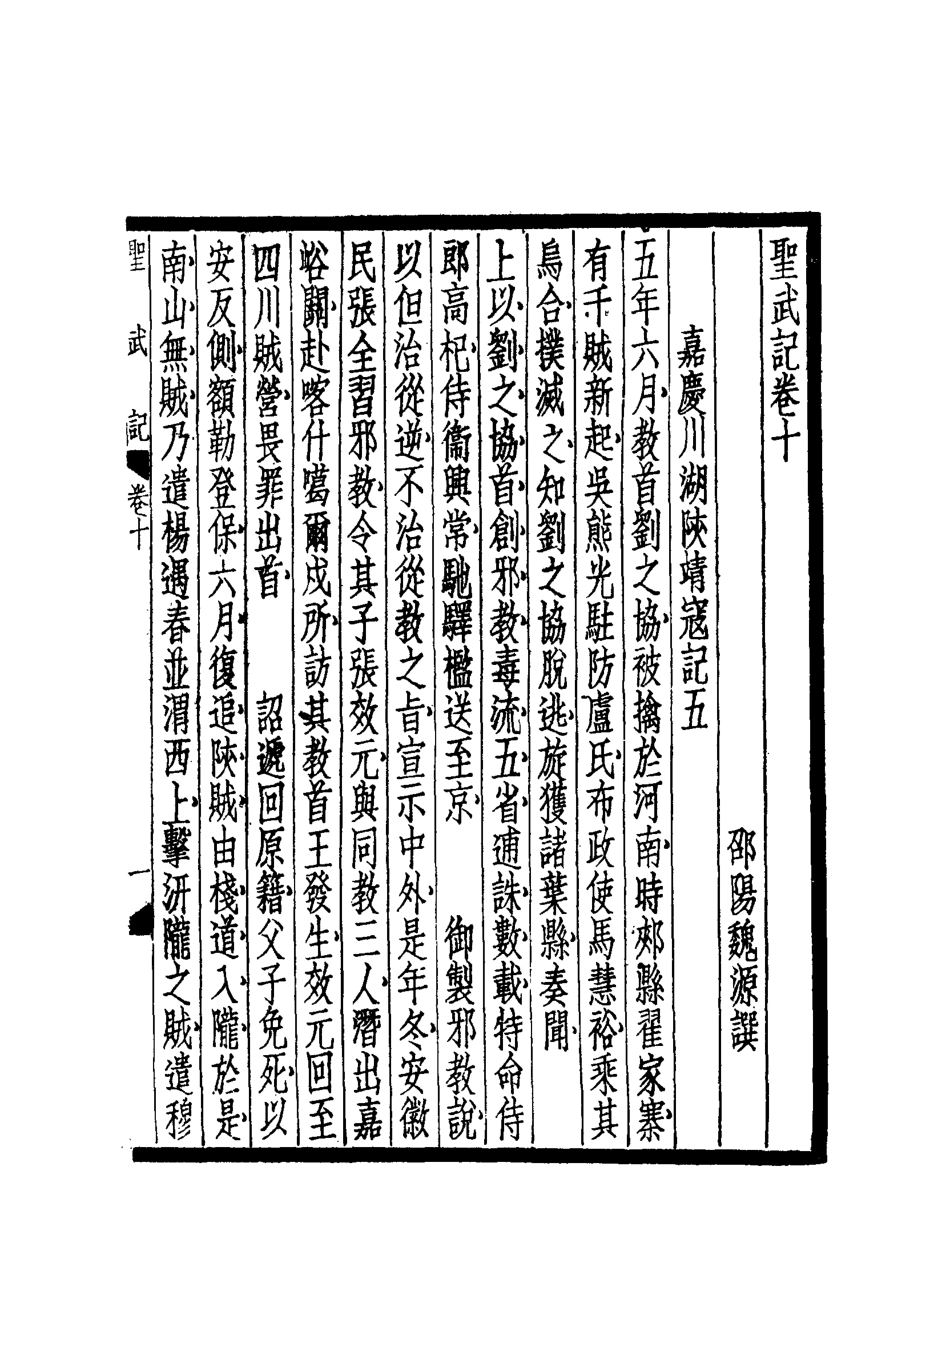 聖武記卷十
邵陽魏源譔
嘉慶川湖陝靖寇記五
五年六月教首劉之協被擒於河南時郟縣翟家寨
有千賊新起吳熊光駐防盧氏布政使馬慧裕乘其
烏合撲滅之知劉之協脫逃旋獲諸葉縣奏聞
上以劉之協首創邪教毒流五省逋誅數載特命侍
郎高杞侍衞興常馳驛檻送至京 御製邪教說
以但治從逆不治從教之旨宣示中外是年冬安徽
民張全習邪教令其子張效元與同教三人潛出嘉
峪關赴喀什噶爾戍所訪其教首王發生效元回至
四川賊營畏罪出首 詔遞回原籍父子免死以
安反側額勒登保六月復追陝賊由棧道入隴於是
南山無賊乃遣楊遇春並渭西上擊汧隴之賊遣穆
聖武記 卷十 一